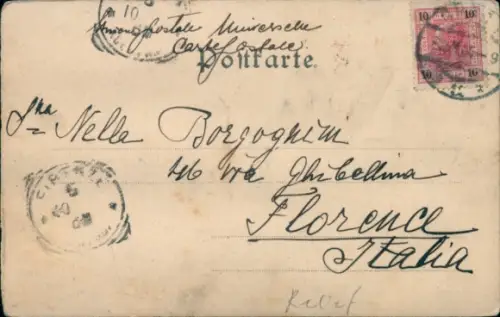 10
Union postale Universelle
Carte postale
Postkarte.
10 10
10 10
Sna Nelle Borgognini
46 via Ghibellina
Florence
Italia
FIRENZE
Relief